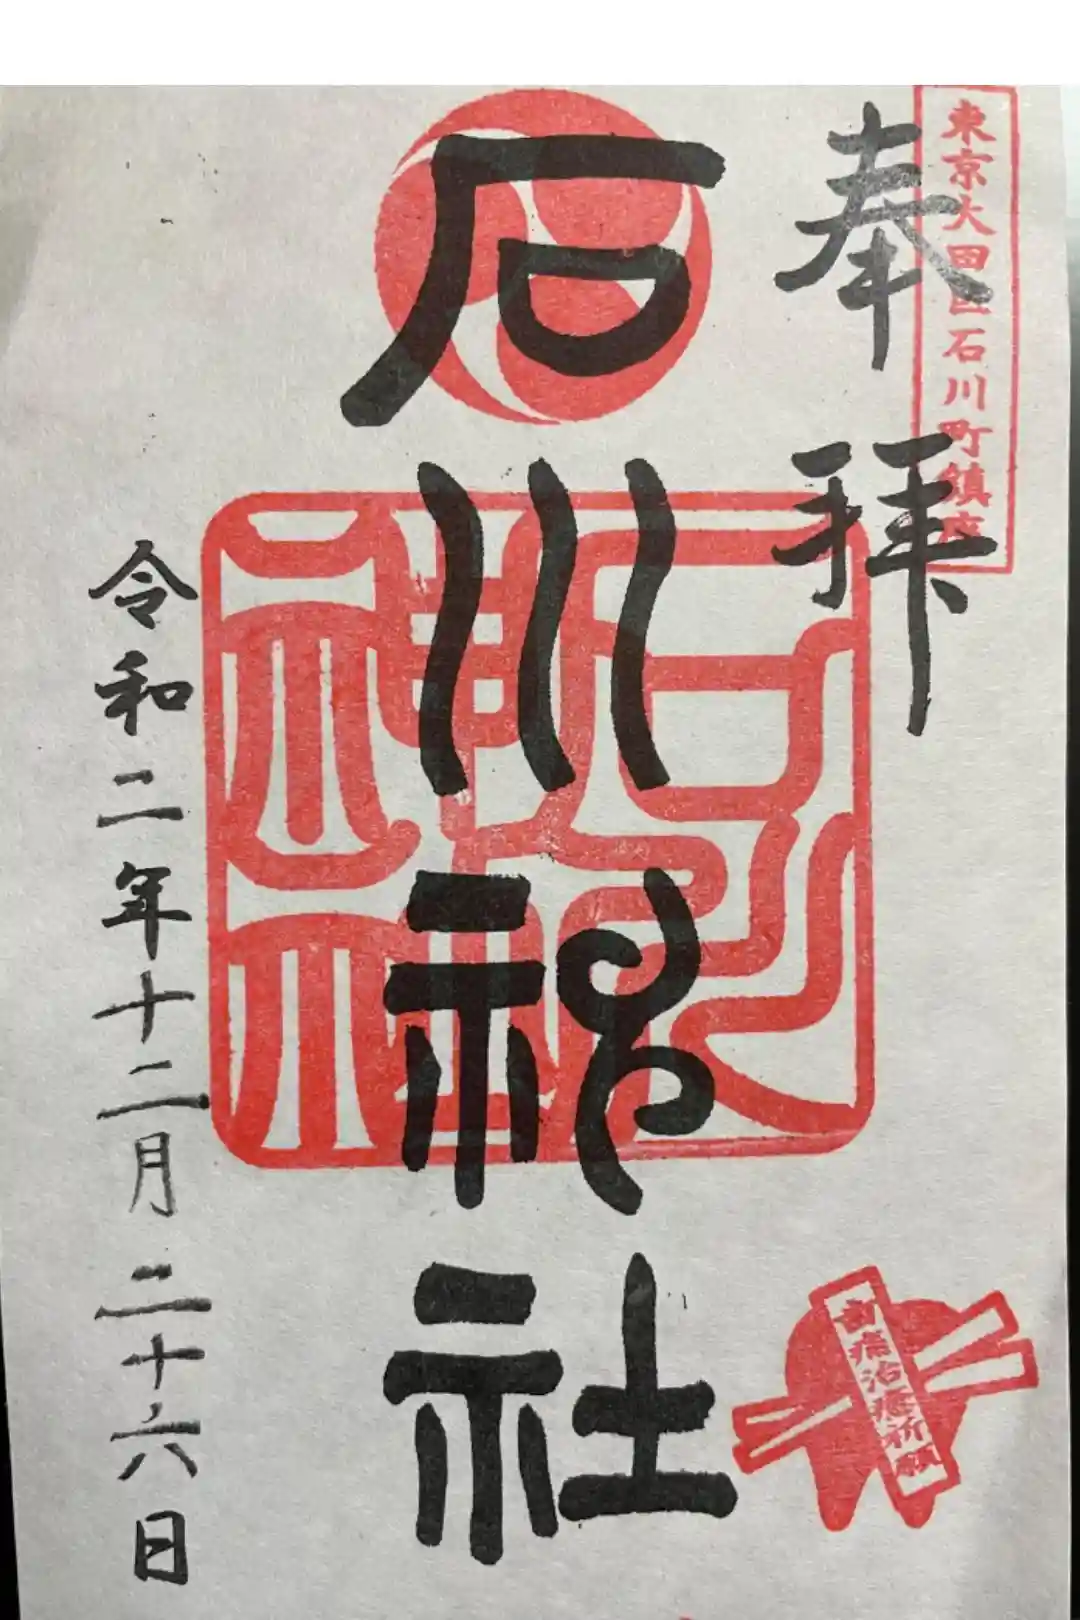 東京大田区石川町鎮座
奉拝
石川神社
令和二年十二月二十六日
石川神社